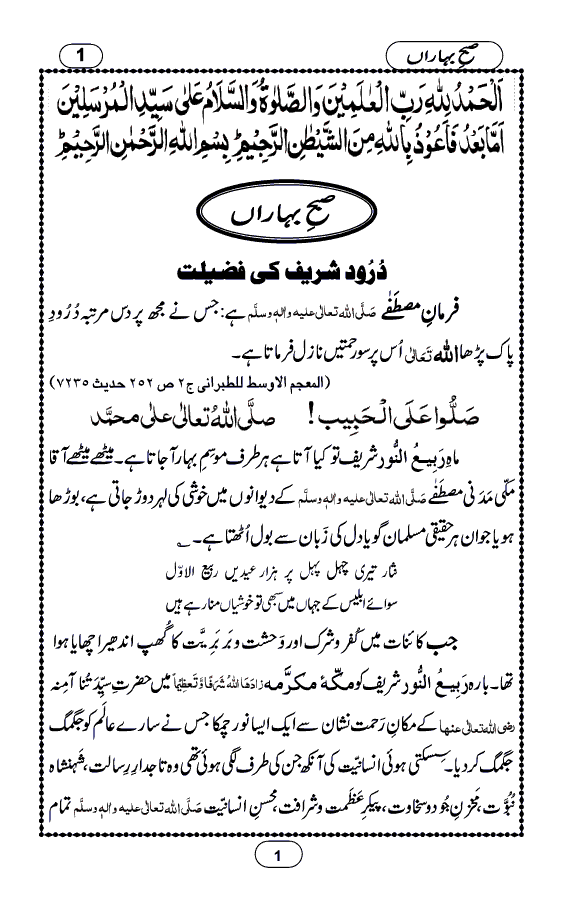 صبحِ بہاراں
1
اَلْحَمْدُ لِلّٰہِ رَبِّ الْعٰلَمِیْنَ وَالصَّلٰوۃُ وَالسَّلَامُ عَلٰی سَیِّدِ الْمُرْسَلِیْنَ
اَمَّا بَعْدُ فَاَعُوْذُ بِاللّٰہِ مِنَ الشَّیْطٰنِ الرَّجِیْمِ ؕ بِسْمِ اللّٰہِ الرَّحْمٰنِ الرَّحِیْمِ ؕ
صبحِ بہاراں
دُرُود شریف کی فضیلت
فرمانِ مصطَفٰے صَلَّی اللہ تعالٰی علیہ واٰلہٖ وسلَّم ہے: جس نے مجھ پر دس مرتبہ دُرُودِ
پاک پڑھا اللہ تَعَالٰی اُس پر سو رحمتیں نازل فرماتا ہے۔
(المعجم الاوسط للطبرانی ج۲ ص ۲۵۲ حدیث ۷۲۳۵)
صَلُّوا عَلَی الْحَبِیب! صلَّی اللہُ تعالٰی علٰی محمَّد
ماہِ رَبِیعُ النُّور شریف تو کیا آتا ہے ہر طرف موسِمِ بہار آ جاتا ہے۔ میٹھے میٹھے آقا
مکّی مَدَنی مصطَفٰے صَلَّی اللہ تعالٰی علیہ واٰلہٖ وسلَّم کے دیوانوں میں خوشی کی لہر دوڑ جاتی ہے، بوڑھا
ہو یا جوان ہر حقیقی مسلمان گویا دل کی زَبان سے بول اُٹھتا ہے۔ ؎
نثار تیری چہل پہل پر ہزار عیدیں ربیع الاوّل
سوائے ابلیس کے جہاں میں سبھی تو خوشیاں منا رہے ہیں
جب کائنات میں کُفر و شرک اور وَحشت و بَربَرِیَّت کا گُھپ اندھیرا چھایا ہوا
تھا۔ بارہ رَبِیعُ النُّور شریف کو مکّۂ مکرَّمہ زادَھَا اللہُ شَرَفًا وَّ تَعظِیْمًا میں حضرتِ سیِّدَتُنا آمِنہ
رضی اللہ تعالٰی عنہا کے مکانِ رَحمت نشان سے ایک ایسا نور چمکا جس نے سارے عالَم کو جگمگ
جگمگ کر دیا۔ سِسکتی ہوئی انسانیّت کی آنکھ جن کی طرف لگی ہوئی تھی وہ تاجدارِ رِسالت، شَہَنشاہِ
نُبُوَّت، مَخزنِ جُود و سخاوت، پیکرِ عَظَمت و شرافت، محسنِ انسانیّت صَلَّی اللہ تعالٰی علیہ واٰلہٖ وسلَّم تمام
1